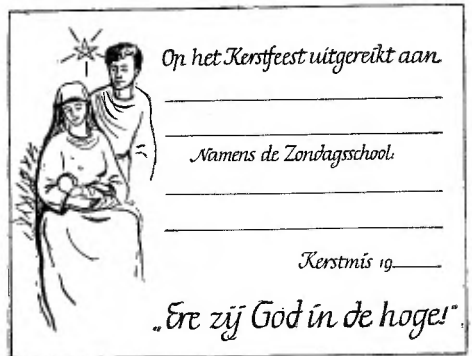 Op het Kerstfeest uitgereikt aan.
Namens de Zondagsschool:
Kerstmis 19
„Ere zij God in de hoge!"